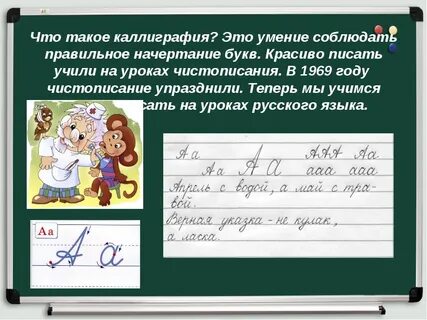 Что такое каллиграфия? Это умение соблюдать
правильное начертание букв. Красиво писать
учили на уроках чистописания. В 1969 году
чистописание упразднили. Теперь мы учимся
сать на уроках русского языка.
Аа А а ААА Аа
Аа ааа ааа
Апрель с водой, а май с тра-
вой.
Верная указка - не кулак,
а ласка.
Аа
А а